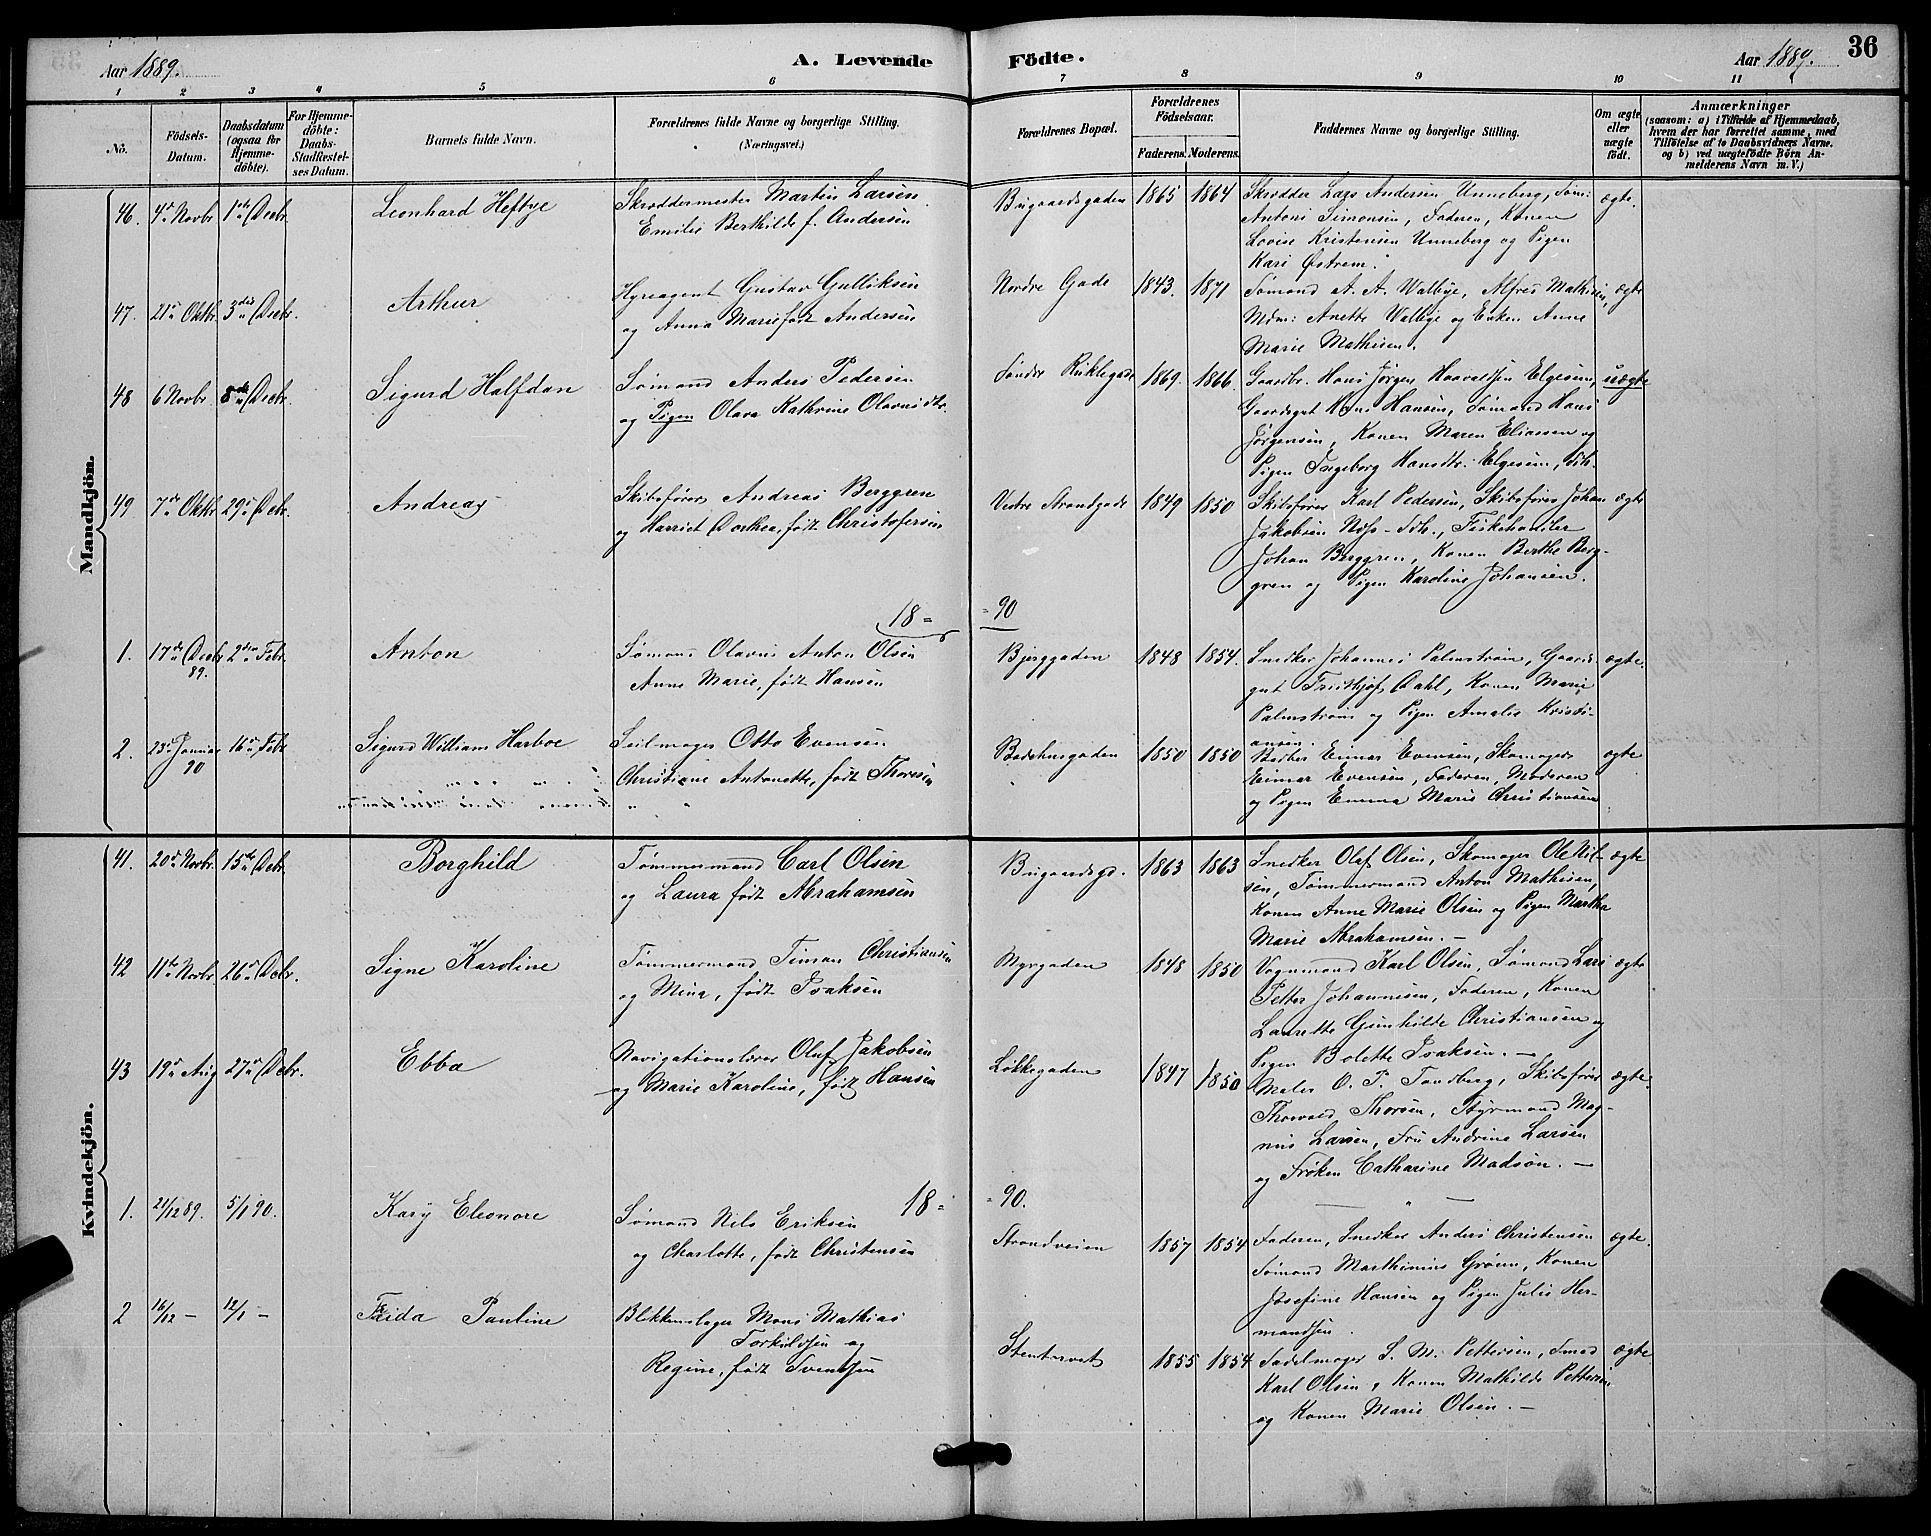 Aar 1889.
A. Levende
Födte.
Aar 1889.
36
1 2 3 4 5 6 7 8 9 10 11
No.
Födsels-Datum.
Daabsdatum (ogsaa for Hjemmedöbte).
For Hjemmedöbte: Daabs-Stadfæstelses Datum.
Barnets fulde Navn.
Forældrenes fulde Navne og borgerlige Stilling.
(Næringsvei.)
Forældrenes Bopæl.
Forældrenes Födselsaar.
Faderens. Moderens.
Faddernes Navne og borgerlige Stilling.
Om ægte eller uægte födt.
Anmærkninger
(saasom: a) i Tilfælde af Hjemmedaab, hvem der har forrettet samme, med Tilföielse af to Daabsvidners Navne, og b) ved uægtefödte Börn Anmelderens Navn m.V.)
Mandkjön.
46. 4de Novbr. 1ste Decbr. Leonhard Heftye
Skræddermester Martin Larsen
Emilie Berthilde f. Andersen
Bugaardsgaden 1865 1864
Skrædder Lars Andersen Unneberg, Søm:
Anton Simonsen, Faderen, Konen
Lovise Kristensen Unneberg og Pigen
Kari Østrem.
ægte.
47. 21de Oktbr. 3die Decbr. Arthur
Hyreagent Gustav Gulliksen
og Anna Marie født Andersen
Nordre Gade 1843. 1871
Sømand A. A. Walbye, Alfred Mathisen,
Mdm: Anette Walbye og Enken Anne
Marie Mathisen.
ægte
48 6 Novbr. 8de Decbr. Sigurd Halfdan
Sømand Anders Pedersen
og Pigen Olava Kathrine Olavusdtr.
Søndre 1869. 1866.
Gaardbr. Hans Jørgen Haavaldsen Elgesem,
Gaardsgut Hans Hansen, Sømand Hans
Jørgensen, Konen Maren Eliassen og
Pigen Ingeborg Hansdtr. Elgesem, Sdh.
uægte
49 7de Oktbr 29de Decbr. Andreas
Skibsfører Andreas Berggren
og Harriet Dorthea, født Christofersen
Vestre Strandgade 1849 1850
Skibsfører Karl Pedersen, Skibsfører Johan
Jakobsen Næs - Sdh., Fiskehandler
Johan Berggren, Konen Berthe Berg-
gren og Pigen Karoline Johansen.
ægte
18 = = 90
1. 17de Decbr 89. 2den Febr. Anton
Sømand Olavus Anton Olsen
Anne Marie, født Hansen
Bjerggaden 1848 1854.
Snedker Johannes Palmstrøm, Gaards-
gut Fridthjof Dahl, Konen Marie
Palmstrøm og Pigen Amalie Kristi-
ansen.
ægte.
2. 23de Januar 90 16de Febr Sigurd William Harboe
Seilmager Otto Evensen
Christiane Antonette, født Thoresen
Badehusgaden 1850 1850
Bødker Einar Evensen, Skomager
Einar Evensen, Faderen, Moderen
og Pigen Emma Marie Christiansen
ægte
Kvindekjön.
41. 20de Novbr. 15de Decbr. Borghild
Tømmermand Carl Olsen
og Laura født Abrahamsen
Bugaardsgd. 1863 1863
Snedker Olaf Olsen, Skomager Ole Niel-
sen, Tømmermand Anton Mathisen,
Konen Anne Marie Olsen og Pigen Martha
Marie Abrahamsen. —
ægte
42 11te Novbr. 26de Decbr. Signe Karoline
Tømmermand Timan Christiansen
og Mina, født Isaksen
Myrgaden 1848 1850
Vognmand Karl Olsen, Sømand Lars
Petter Johannesen, Faderen, Konen
Laurette Gunhilde Christiansen og
Pigen Bolette Isaksen. —
ægte
43 19de Aug 27de Decbr. Ebba
Navigationslærer Oluf Jakobsen
og Marie Karoline, født Hansen
Løkkegaden 1847 1850
Maler O. P. Tandberg, Skibsfører
Thorvald Thorsen, Styrmand Mag-
nus Larsen, Fru Andrine Larsen
og Frøken Catharine Madsøn. —
ægte.
18 = = 90.
1. 21/12 89. 5/1 90. Kary Eleonore
Sømand Nils Eriksen
og Charlotte, født Christensen
Strandveien 1857 1854
Faderen, Snedker Anders Christensen
Sømand Marthinius Grønn, Konen
Josefine Hansen og Pigen Julie Her-
mandsen.
ægte.
2 16/12 - 12/1 - Frida Pauline
Blikkenslager Mons Mathias
Torkildsen og
Regine, født Svendsen
Stentorvet 1855 1854
Sadelmager S. M. Pettersen, Smed
Karl Olsen, Konen Mathilde Pettersen
og Konen Marie Olsen. —
ægte